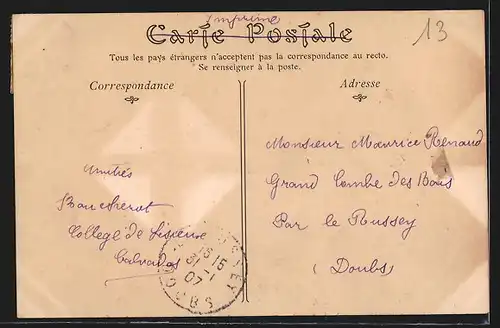 Imprimé
13
Carte Postale
Tous les pays étrangers n'acceptent pas la correspondance au recto.
Se renseigner à la poste.
Correspondance
Adresse
Amitiés
Boucherot
College de Lisieux
Calvados
Monsieur Maurice Renaud
Grand Combe des Bois
Par le Russey
(Doubs)
15
31 - 1
07
DOUBS